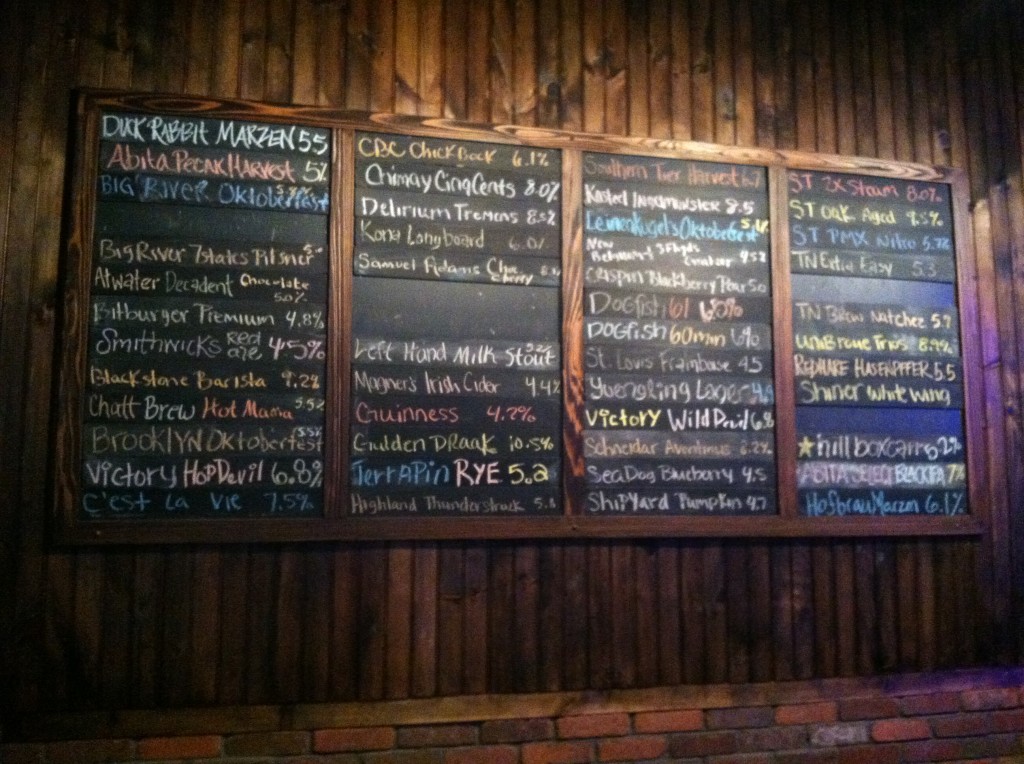 DUCK RABBIT MARZEN 55
Abita Pecan Harvest 5%
BIG RIVER Oktoberfest
Big River 7states Pilsner
Atwater Decadent Chocolate
5.0%
Bitburger Premium 4.8%
Smithwicks Red ale 4.5%
Blackstone Barista 9.2%
Chatt Brew Hot Mama 5.5%
BROOKLYN Oktoberfest
Victory HopDevil 6.8%
C'est La Vie 7.5%
CBC Chick Bock 6.1%
Chimay Cinq Cents 8.0%
Delirium Tremens 8.5%
Kona Longboard 6.0%
Samuel Adams Cherry
Left Hand Milk Stout
Magner's Irish Cider 4.4%
Guinness 4.2%
Gulden DRaak 10.5%
TerrAPin RYE 5.2
Highland Thunderstruck
Southern Tier Harvest
Kasteel Ingelmunster 8.5
Leinenkugel's Oktoberfest
New
CRISPIN Blackberry Pear 5.0
Dogfish 61
DOGFISH 60min
St. Louis Framboise 4.5
Yuengling Lager
Victory Wild Devil
Schneider Aventinus 8.2%
Sea Dog Blueberry 4.5
Shipyard Pumpkin 4.7
ST 2X Steam 8.0%
ST Oak Aged 9.5%
ST PMX Nitro
TN Extra Easy 5.3
TN Brew Natchez 5.7
UniBroue Trois 8.9%
REDHARE HASENPFEFFER 5.5
Shiner White Wing
hill boxcar
ABITA SELECT BLACK IPA 7%
Hofbrau Marzen 6.1%